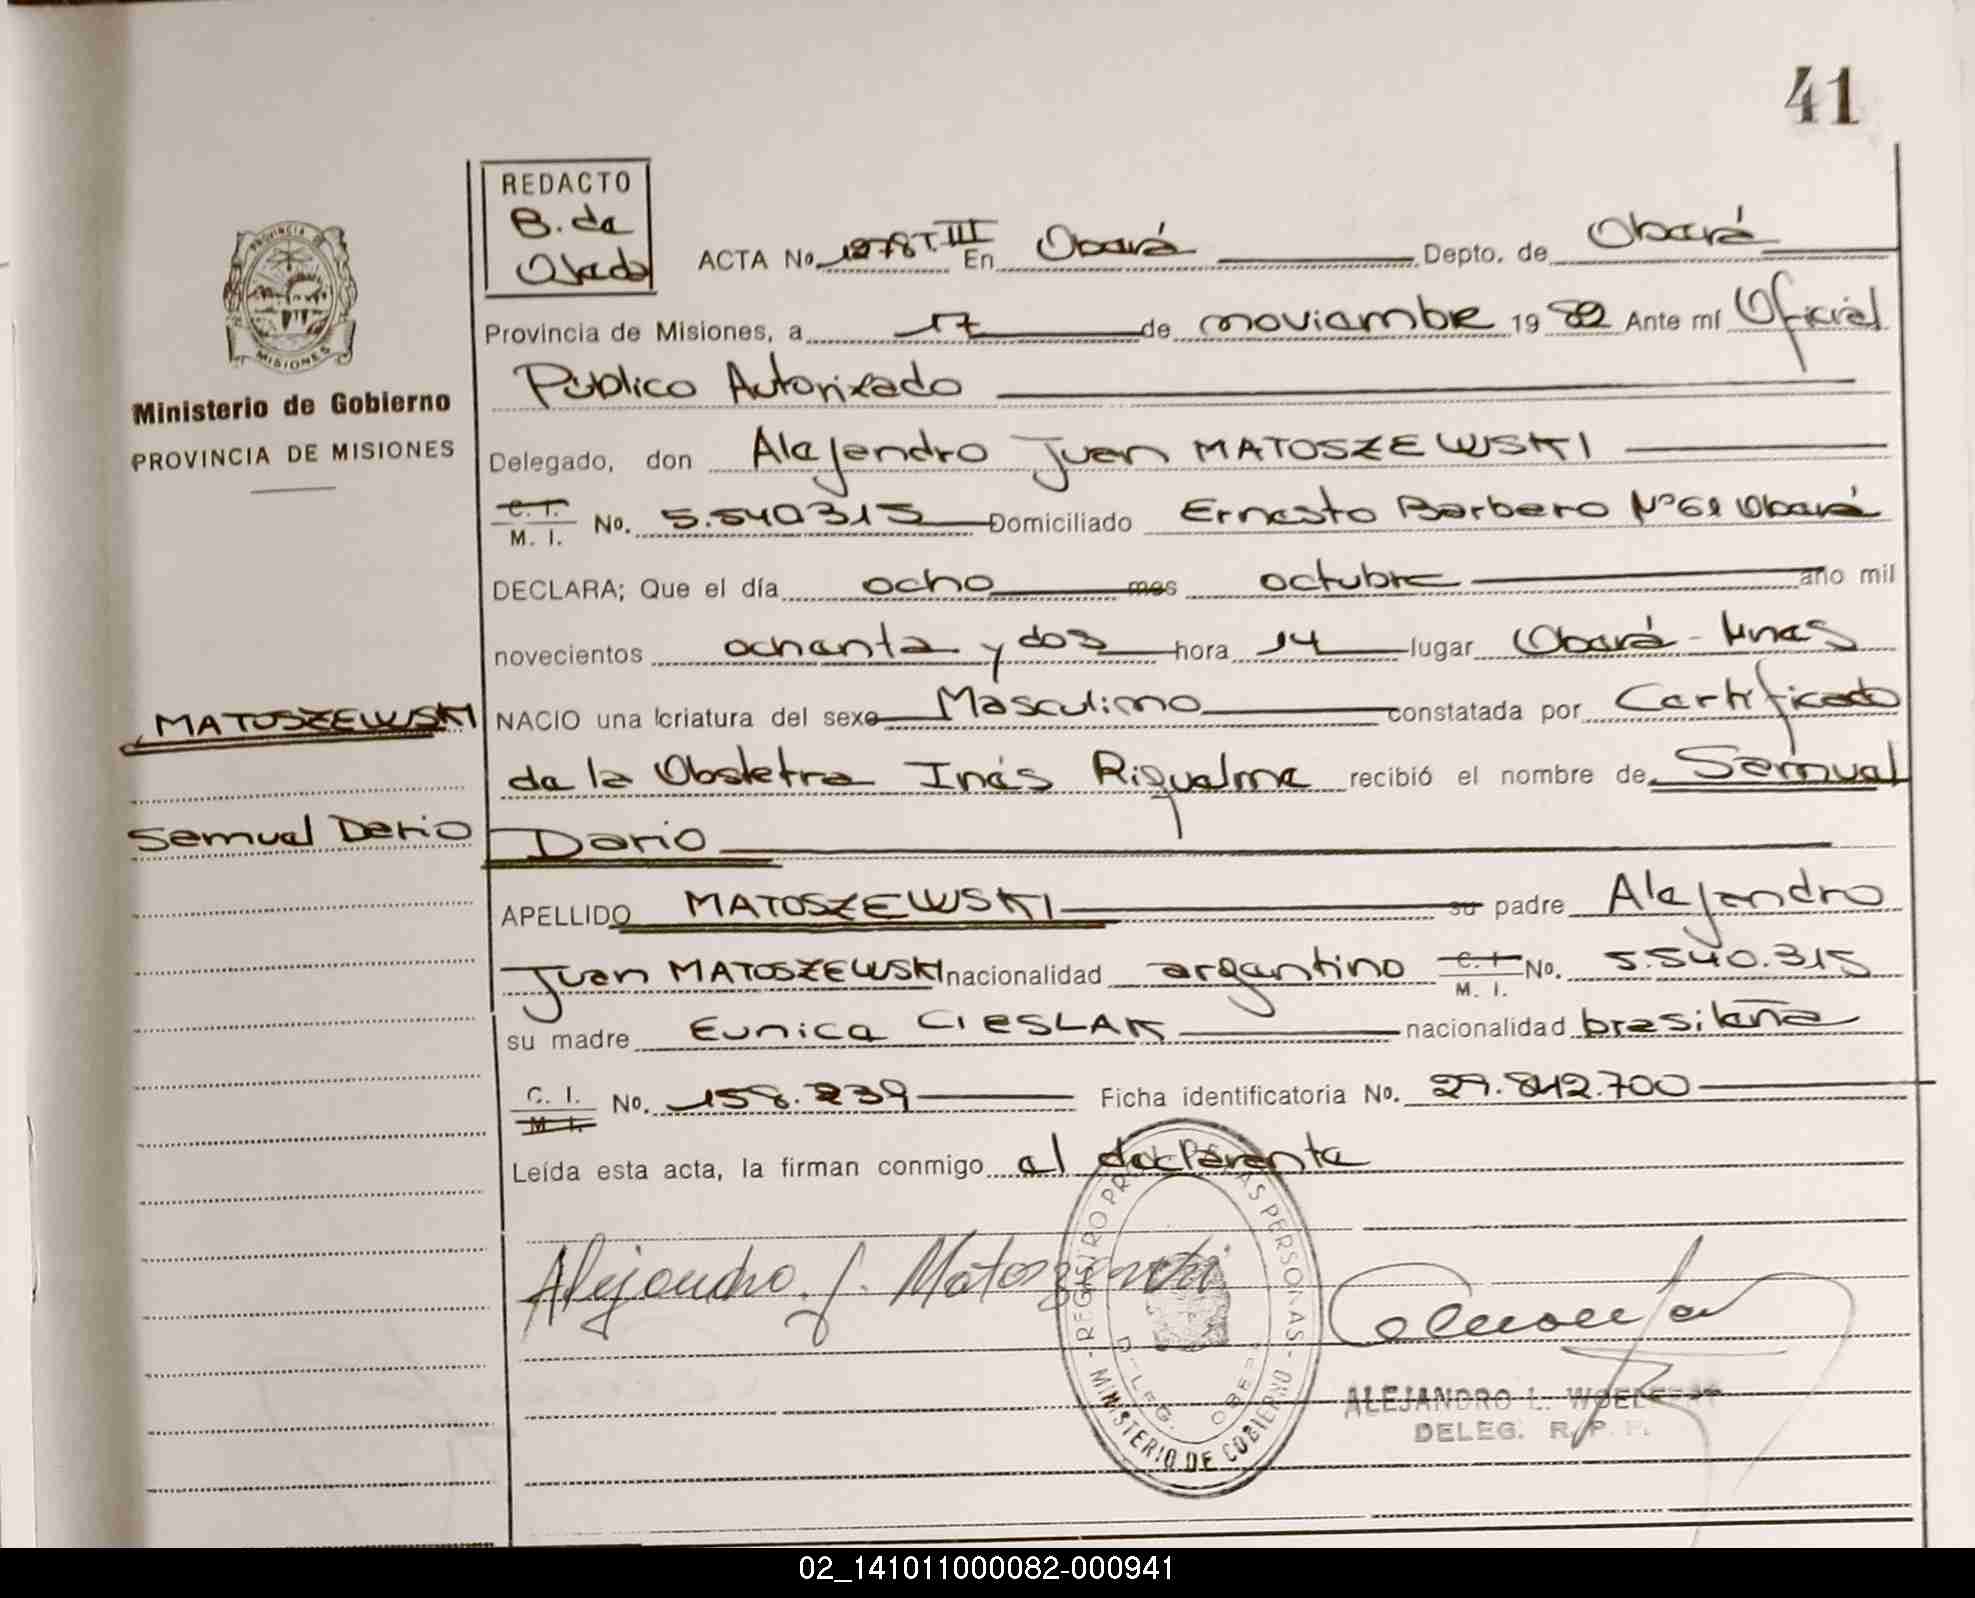 41
REDACTO
B. de
ACTA No 1278 T. III En Oberá Depto. de Oberá
Provincia de Misiones, a 17 de noviembre 19 82 Ante mí Oficial
Público Autorizado
Ministerio de Gobierno
PROVINCIA DE MISIONES
Delegado, don Alejandro Juan MATOSZEWSKI
C. I. M. I. No. 5.540315 Domiciliado Ernesto Barbero Nº 62 Oberá
DECLARA; Que el día ocho mes octubre año mil
novecientos ochenta y dos hora 14 lugar Oberá - Mnes
MATOSZEWSKI
NACIO una criatura del sexo Masculino constatada por Certificado
de la Obstetra Inés Riquelme recibió el nombre de Samuel
Samuel Dario
Dario
APELLIDO MATOSZEWSKI su padre Alejandro
Juan MATOSZEWSKI nacionalidad argentino C. I. M. I. No. 5.540.315
su madre Eunice CIESLAK nacionalidad brasileña
C. I. M. I. No. 158.239 Ficha identificatoria No. 29.842.700
Leída esta acta, la firman conmigo el declarante
Alejandro J. Matoszewski
REGISTRO PROV. DE LAS PERSONAS - MINISTERIO DE GOBIERNO
DELEG. OBERA
ALEJANDRO L.
DELEG. R. P. P.
02_141011000082-000941